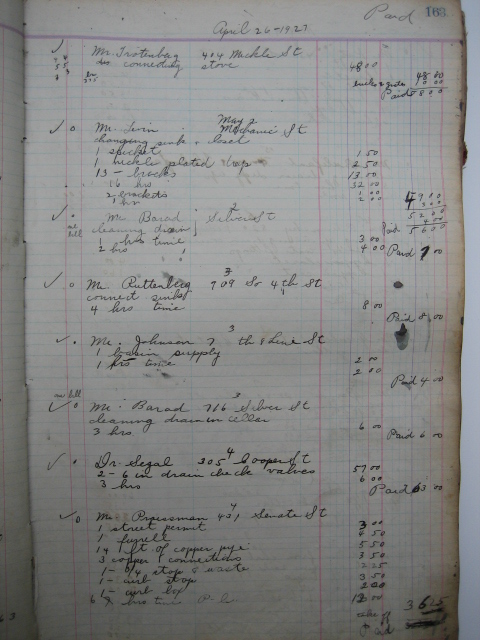 Paid 163
April 26-1927
Mr. Trotenberg 404 Mickle St
connecting stove 48 00
48 00
Paid
May 2
Mr. Levin Mechanic St
changing sink & closet
1 spicket 1 50
1 nickle plated trap 2 50
13 - brocks 13 00
16 hrs 32 00
2 brackets 1 00
1 hr 2 00
49 00
3 00
52 00
4 00
Paid 56 00
2
Mr. Barad Silver St
cleaning drain
1 hrs time 3 00
2 hrs " " 4 00 Paid 7 00
3
Mr. Ruttenberg 709 So 4th St
connect sink
4 hrs time 8 00
Paid 8.00
3
Mr. Johnson 7th & Line St
1 basin supply 2 00
1 hrs time 2 00
Paid 4 00
3
Mr. Barad 766 Silver St
cleaning drain in cellar
3 hrs 6 00 Paid 6 00
4
Dr. Segal 205 Cooper St
2 - 6 in drain check valves 57 00
3 hrs 6 00
Paid 63 00
4
Mr. Pressman 431 Senate St
1 street permit 3 00
1 ferrell 4 50
14 ft of copper pipe 5 50
3 copper connections 3 50
1 - 3/4 stop & waste 2 25
1 - curb stop 3 50
1 - curb box 2 00
6 hrs time 12 00
36 25
Paid